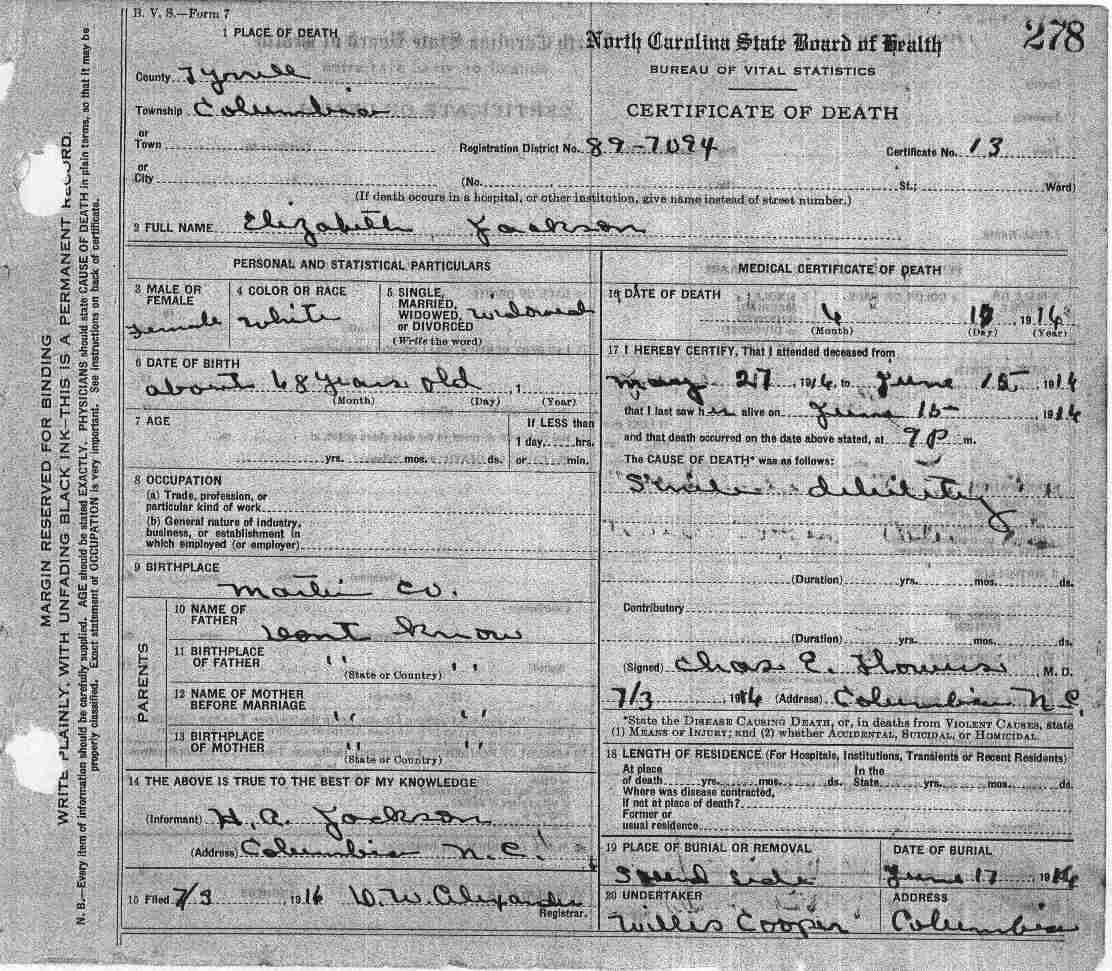 B. V. S.—Form 7
278
1 PLACE OF DEATH
County Tyrrell
Township Columbia
or
Town
or
City
(No.
St.;
Ward)
North Carolina State Board of Health
BUREAU OF VITAL STATISTICS
CERTIFICATE OF DEATH
Registration District No. 89-7094
Certificate No. 13
(If death occurs in a hospital, or other institution, give name instead of street number.)
2 FULL NAME Elizabeth Jackson
PERSONAL AND STATISTICAL PARTICULARS
3 MALE OR FEMALE
Female
4 COLOR OR RACE
White
5 SINGLE, MARRIED, WIDOWED, or DIVORCED
(Write the word)
Widowed
6 DATE OF BIRTH
about 68 years old , 1
(Month) (Day) (Year)
7 AGE
yrs. mos. ds.
If LESS than
1 day, hrs.
or min.
8 OCCUPATION
(a) Trade, profession, or
particular kind of work
(b) General nature of industry,
business, or establishment in
which employed (or employer)
9 BIRTHPLACE
Martin Co.
PARENTS
10 NAME OF FATHER
dont know
11 BIRTHPLACE OF FATHER
" "
(State or Country)
12 NAME OF MOTHER BEFORE MARRIAGE
" "
13 BIRTHPLACE OF MOTHER
" "
(State or Country)
14 THE ABOVE IS TRUE TO THE BEST OF MY KNOWLEDGE
(Informant) H. A. Jackson
(Address) Columbia N.C.
15 Filed 7/3 , 1916 D. W. Alexander
Registrar.
MEDICAL CERTIFICATE OF DEATH
16 DATE OF DEATH
6 15 1916
(Month) (Day) (Year)
17 I HEREBY CERTIFY, That I attended deceased from
May 27 , 1916, to June 15 , 1916
that I last saw her alive on June 15 1916
and that death occurred on the date above stated, at 9 P m.
The CAUSE OF DEATH* was as follows:
Senile debility
(Duration) yrs. mos. ds.
Contributory
(Duration) yrs. mos. ds.
(Signed) Chas E. Flowers , M. D.
7/3 1916 (Address) Columbia N.C.
*State the DISEASE CAUSING DEATH, or, in deaths from VIOLENT CAUSES, state
(1) MEANS OF INJURY; and (2) whether ACCIDENTAL, SUICIDAL, or HOMICIDAL
18 LENGTH OF RESIDENCE (For Hospitals, Institutions, Transients or Recent Residents)
At place of death yrs. mos. ds. In the State yrs. mos. ds.
Where was disease contracted,
If not at place of death?
Former or
usual residence
19 PLACE OF BURIAL OR REMOVAL
Sound Side
DATE OF BURIAL
June 17 1916
20 UNDERTAKER
Willis Cooper
ADDRESS
Columbia
MARGIN RESERVED FOR BINDING
WRITE PLAINLY, WITH UNFADING BLACK INK—THIS IS A PERMANENT RECORD.
N. B.—Every item of information should be carefully supplied. AGE should be stated EXACTLY. PHYSICIANS should state CAUSE OF DEATH in plain terms, so that it may be
properly classified. Exact statement of OCCUPATION is very important. See instructions on back of certificate.